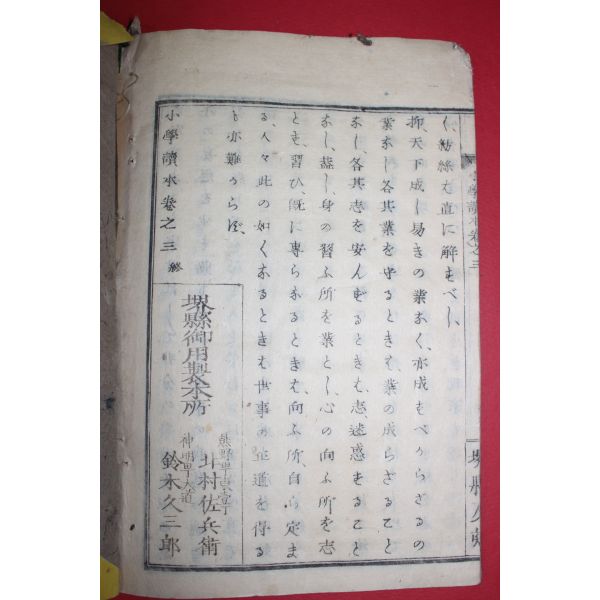 く、紛絲も直に解すべし、
抑、天下成し易きの業なく、亦成すべからざるの
業なし各其業を守るときは、業の成らざること
なし、各其志を安んずるときは、志迷惑すること
なし、蓋し、身の習ふ所を業とし、心の向ふ所を志
とす、習ひ、既に專らなるときは、向ふ所、自ら定ま
る、人々此の如くなるときは、世事の至道を得る
も亦難からず、
小學讀本卷之三 終
堺縣御用製本所
熊野
北村佐兵衛
神明
大道
鈴木久三郎
小學讀本卷之三
堺縣